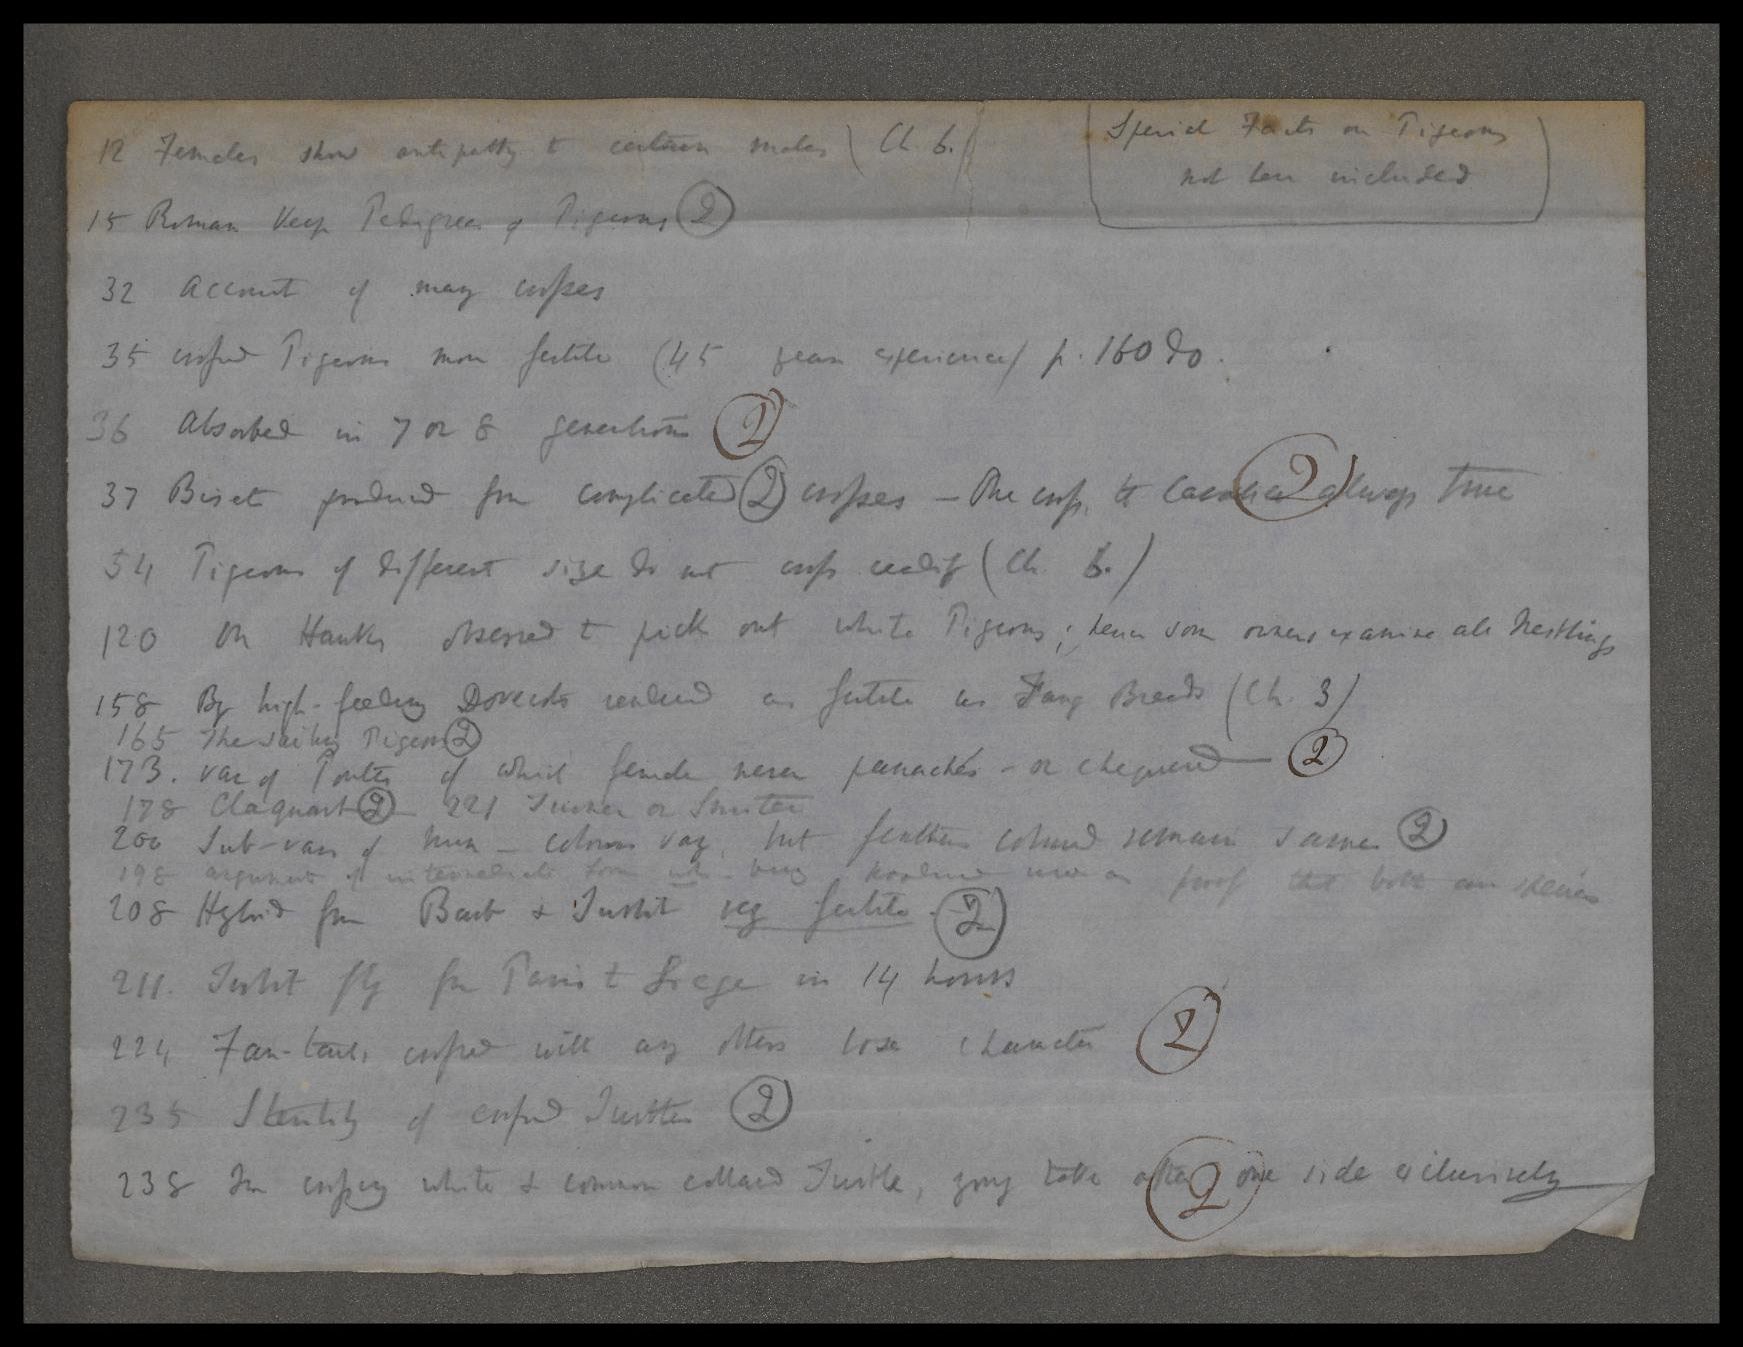 12 Females show antipathy to certain males (Ch. 6.)
Special Facts on Pigeons
not here included
15 Roman Keep Pedigrees of Pigeons ②
32 Account of many crosses
35 crossed Pigeons more fertile (45 years experience) p. 160 do.
36 Absorbed in 7 or 8 generations ②
37 Biset produced from complicated ② crosses — One cross, to ② always true
54 Pigeons of different size do not cross readily (Ch. 6.)
120 On Hawks observed to pick out white Pigeons; hence some owners examine all nestlings
158 By high-feeding Dovecots rendered as fertile as Fancy Breeds (Ch. 3)
165 The Pigeon ②
173. var of Pouter of which female never panachés – or chequered — ②
178 Claquart ② — 221 Turner or Smiter
200 Sub-vars of Nun – colours vary, but feathers coloured remain same ②
198 argument of intermediate form not being produced used as proof that both are species
208 Hybrid from Barb & Turbit very fertile ②
211. Turbit fly from Paris to Liege in 14 hours
224 Fan-tails, crossed with any others lose character ②
235 Sterility of crossed Turtles ②
238 In crossing white & common collared Turtle, young take after ② one side exclusively